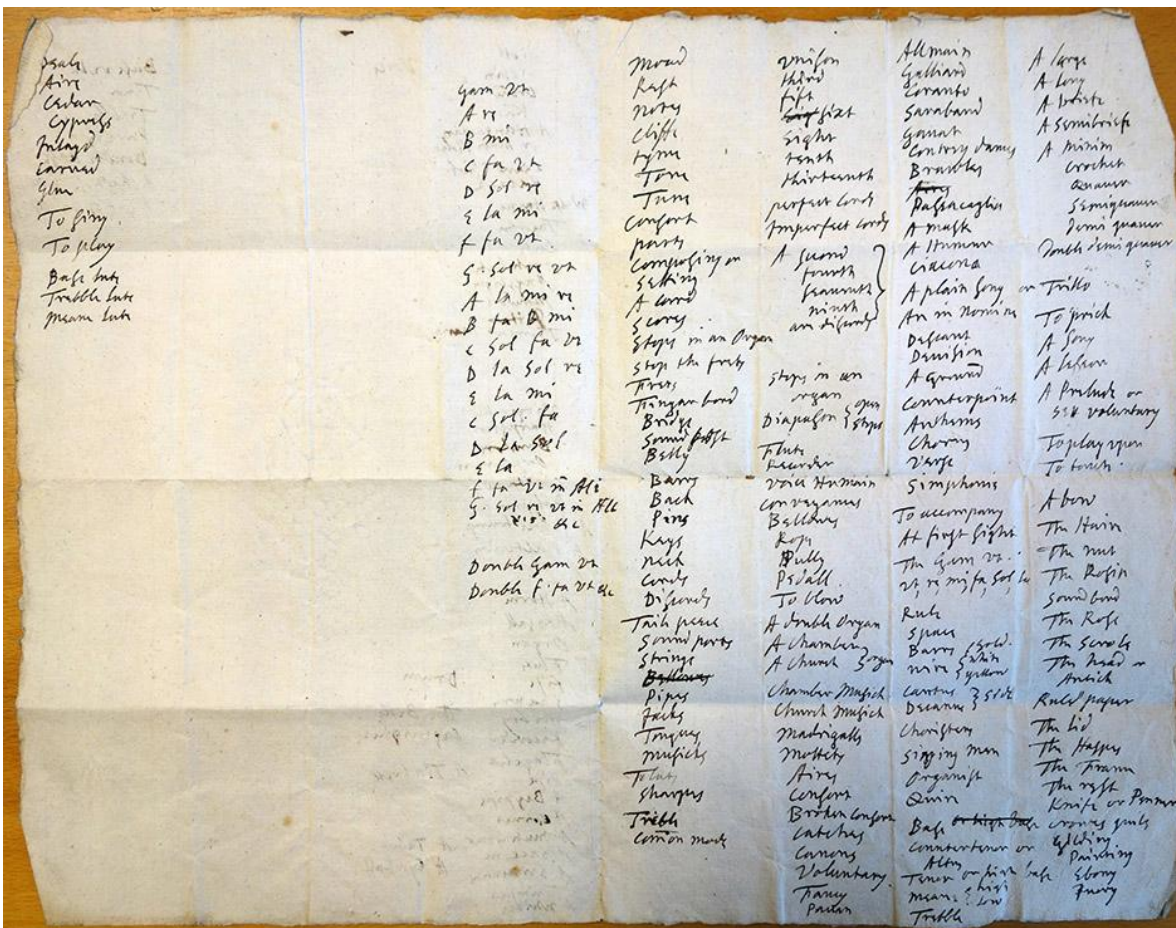 Aire
Cedar
Cypress
Inlayd
Carved
Glue
To sing
To play
Base lute
Trebble lute
Meane lute
Gam ut
A re
B mi
C fa ut
D Sol re
E la mi
F fa ut
G Sol re ut
A la mi re
B fa B mi
C Sol fa ut
D la Sol re
E la mi
C Sol fa
D La Sol
E la
F fa ut in Alt
G Sol re ut in Alt
&c
Double Gam ut
Double F fa ut &c
Mood
Rest
Notes
Cliffe
tyme
Tone
Tune
Consort
parts
Composing or
Setting
A cord
Scores
Stops in an Organ
Stop the frets
Frets
Fingar bord
Bridge
Sound post
Belly
Barrs
Back
Pins
Keys
neck
Cords
Discords
Taile peece
Sound ports
Strings
Bellowes
Pipes
Jacks
Tongues
musicks
sharpes
Treble
Common mood
Unison
third
fift
sixt
Eight
tenth
thirteenth
perfect Cords
Imperfect Cords
A Second
fourth
Seaventh
ninth
are discords
Stops in an
organ
Diapason open
stopt
Flute
Recorder
Voice Humain
Conveyances
Bellows
Rope
Pully
Pedall
To blow
A double Organ
A Chamber
A Church organ
Chamber Musick
Church Musick
Madrigalls
Mottets
Aires
Consort
Broken Consort
Catches
Canons
Voluntary
Fancy
Pavan
Allmain
Galliard
Coranto
Saraband
Gavat
Contery dances
Brawles
Aires
Passacaglia
A mask
A Humour
Ciacona
A plain Song
An in Nomine
Descant
Devision
A Ground
Counterpoint
Anthems
Chorus
Verse
Simphonie
To accompany
At first sight
The Gam ut.
ut, re mi, fa, Sol, la
Rule
Space
Barrs Gold
wire white
yellow
Cantus
Decanus side
Choristers
Singing men
Organist
Quire
Base or high base
Countertenor or
Altus
Tenor or high base
meane high
low
Trebble
A large
A long
A breife
A Semibreife
A minim
Crochet
Quaver
Semiquaver
demi quaver
Double demi quaver
or Trillo
To prick
A Song
A lesson
A Prelude or
Voluntary
To play upon
To touch
A bow
The Haire
The nut
The Rosin
Sound bord
The Rose
The Scrole
The Head or
Antick
Ruled paper
The lid
The Happs
The Frame
The rest
Knife or Penner
Crowes quils
Gilding
Painting
Ebony
Ivory